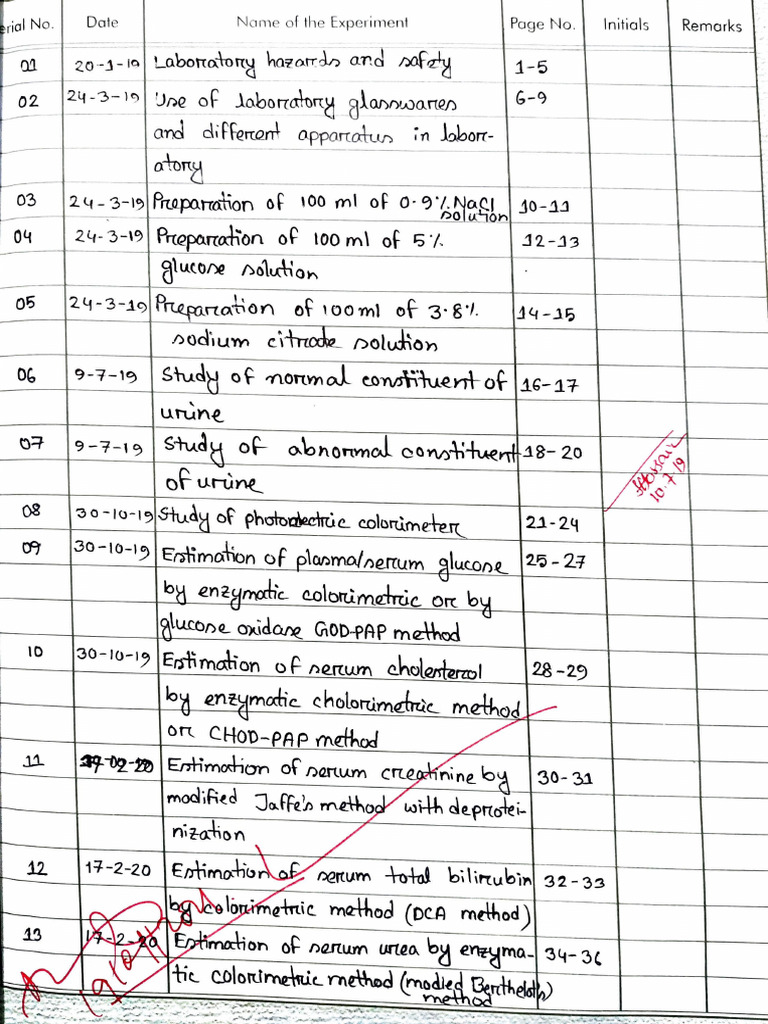 erial No. Date Name of the Experiment Page No. Initials Remarks
01 20-1-19 Laboratory hazards and safety 1-5
02 24-3-19 Use of laboratory glasswares 6-9
and different apparatus in labor-
atory
03 24-3-19 Preparation of 100 ml of 0.9% NaCl 10-11
solution
04 24-3-19 Preparation of 100 ml of 5% 12-13
glucose solution
05 24-3-19 Preparation of 100 ml of 3.8% 14-15
sodium solution
06 9-7-19 Study of normal constituent of 16-17
urine
07 9-7-19 Study of abnormal constituent 18-20
of urine
10.7.19
08 30-10-19 Study of photoelectric colorimeter 21-24
09 30-10-19 Estimation of plasma/serum glucose 25-27
by enzymatic colorimetric or by
glucose oxidase GOD-PAP method
10 30-10-19 Estimation of serum cholesterol 28-29
by enzymatic cholorimetric method
or CHOD-PAP method
11 17-02-20 Estimation of serum creatinine by 30-31
modified Jaffe's method with deprotei-
nization
12 17-2-20 Estimation of serum total bilirubin 32-33
by colorimetric method (DCA method)
13 17-2-20 Estimation of serum urea by enzyma- 34-36
tic colorimetric method (modied Berthelot's)
method